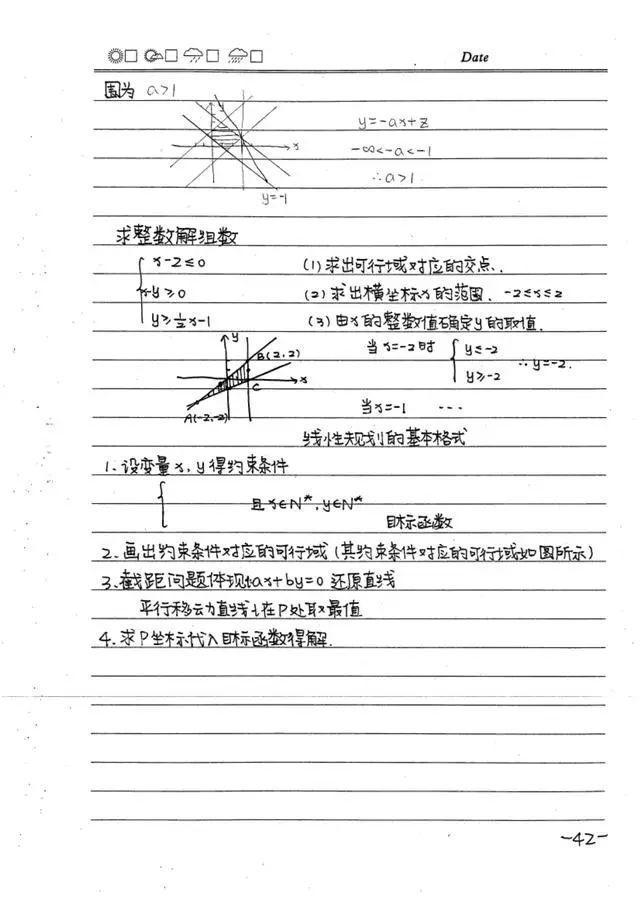 Date
围为 a>1
y
x
y=-1
y=-ax+z
-∞<-a<-1
∴a>1
求整数解组数
x-2≤0
x-y≥0
y≥½x-1
(1)求出可行域对应的交点.
(2)求出横坐标x的范围. -2≤x≤2
(3)由x的整数值确定y的取值.
y
B(2,2)
x
C
A(-2,-2)
当x=-2时 { y≤-2
y≥-2 ∴y=-2.
当x=-1 ...
线性规划的基本格式
1.设变量x,y得约束条件
且x∈N*,y∈N*
目标函数
2.画出约束条件对应的可行域(其约束条件对应的可行域如图所示)
3.截距问题体现ax+by=0 还原直线
平行移动直线l在P处取最值
4.求P坐标代入目标函数得解.
-42-